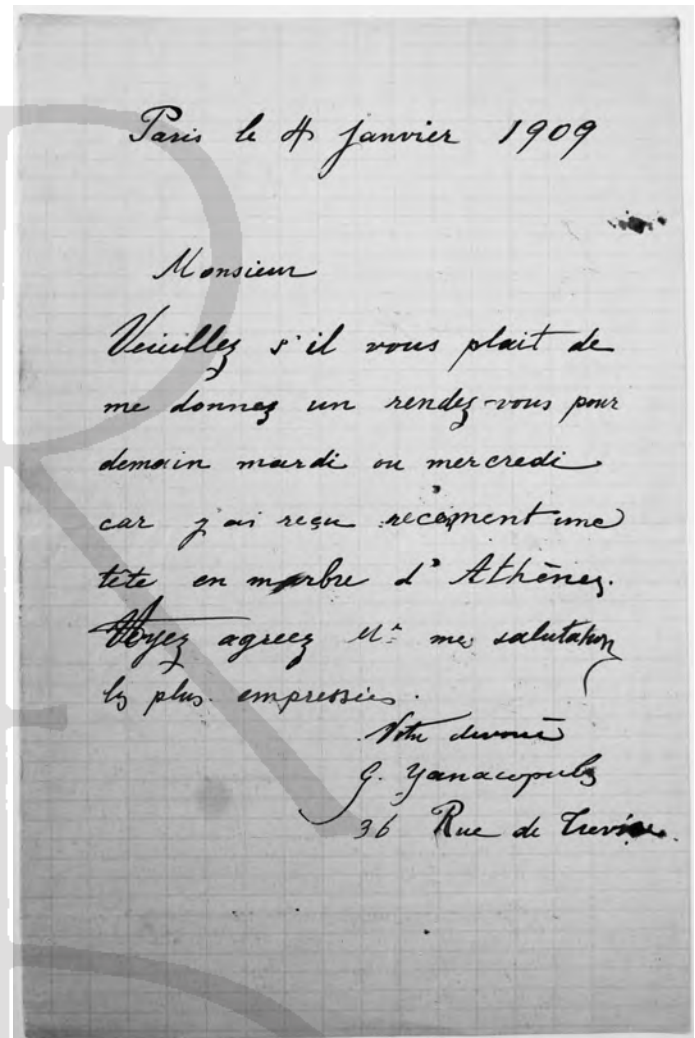 Paris le 4 janvier 1909
Monsieur
Veuillez s'il vous plait de
me donnez un rendez-vous pour
demain mardi ou mercredi
car j'ai reçu recement une
tête en marbre d'Athènes.
agreez Mr mes salutation
les plus empressées.
Votre devoué
G. Yanacopulos
36 Rue de Trevise.